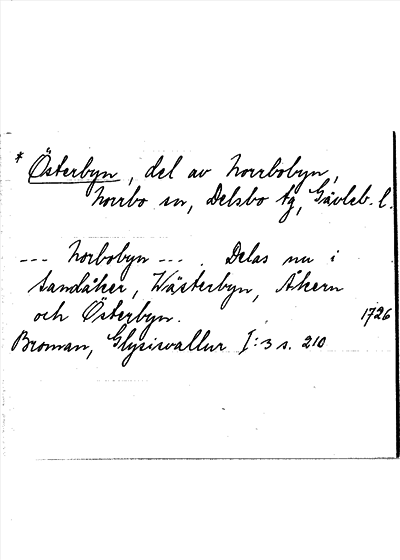 * Österbyn, del av Norrbobyn,
Norrbo sn, Delsbo tg, Gävleb. l.
--- Norbobyn ---. Delas nu i
Sandåker, Wästerbyn, Åkern
och Österbyn. 1726
Broman, Glysisvallur I:3 s. 210